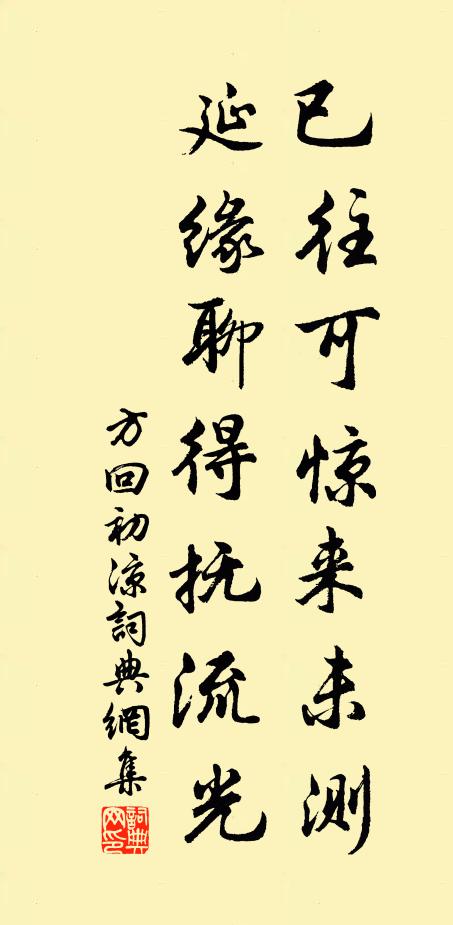 已往可惊来未测
延缘聊得抚流光
方回初涼詞典網集
詞典
网印